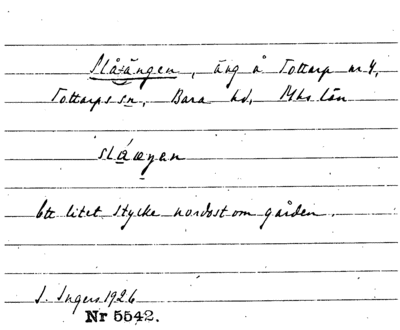 Slåängen, äng å Tottarp nr 4,
Tottarps sn, Bara hd, Mhs län
slåæŋen
Ett litet stycke nordost om gården.
I. Ingers 1926
Nr 5542.